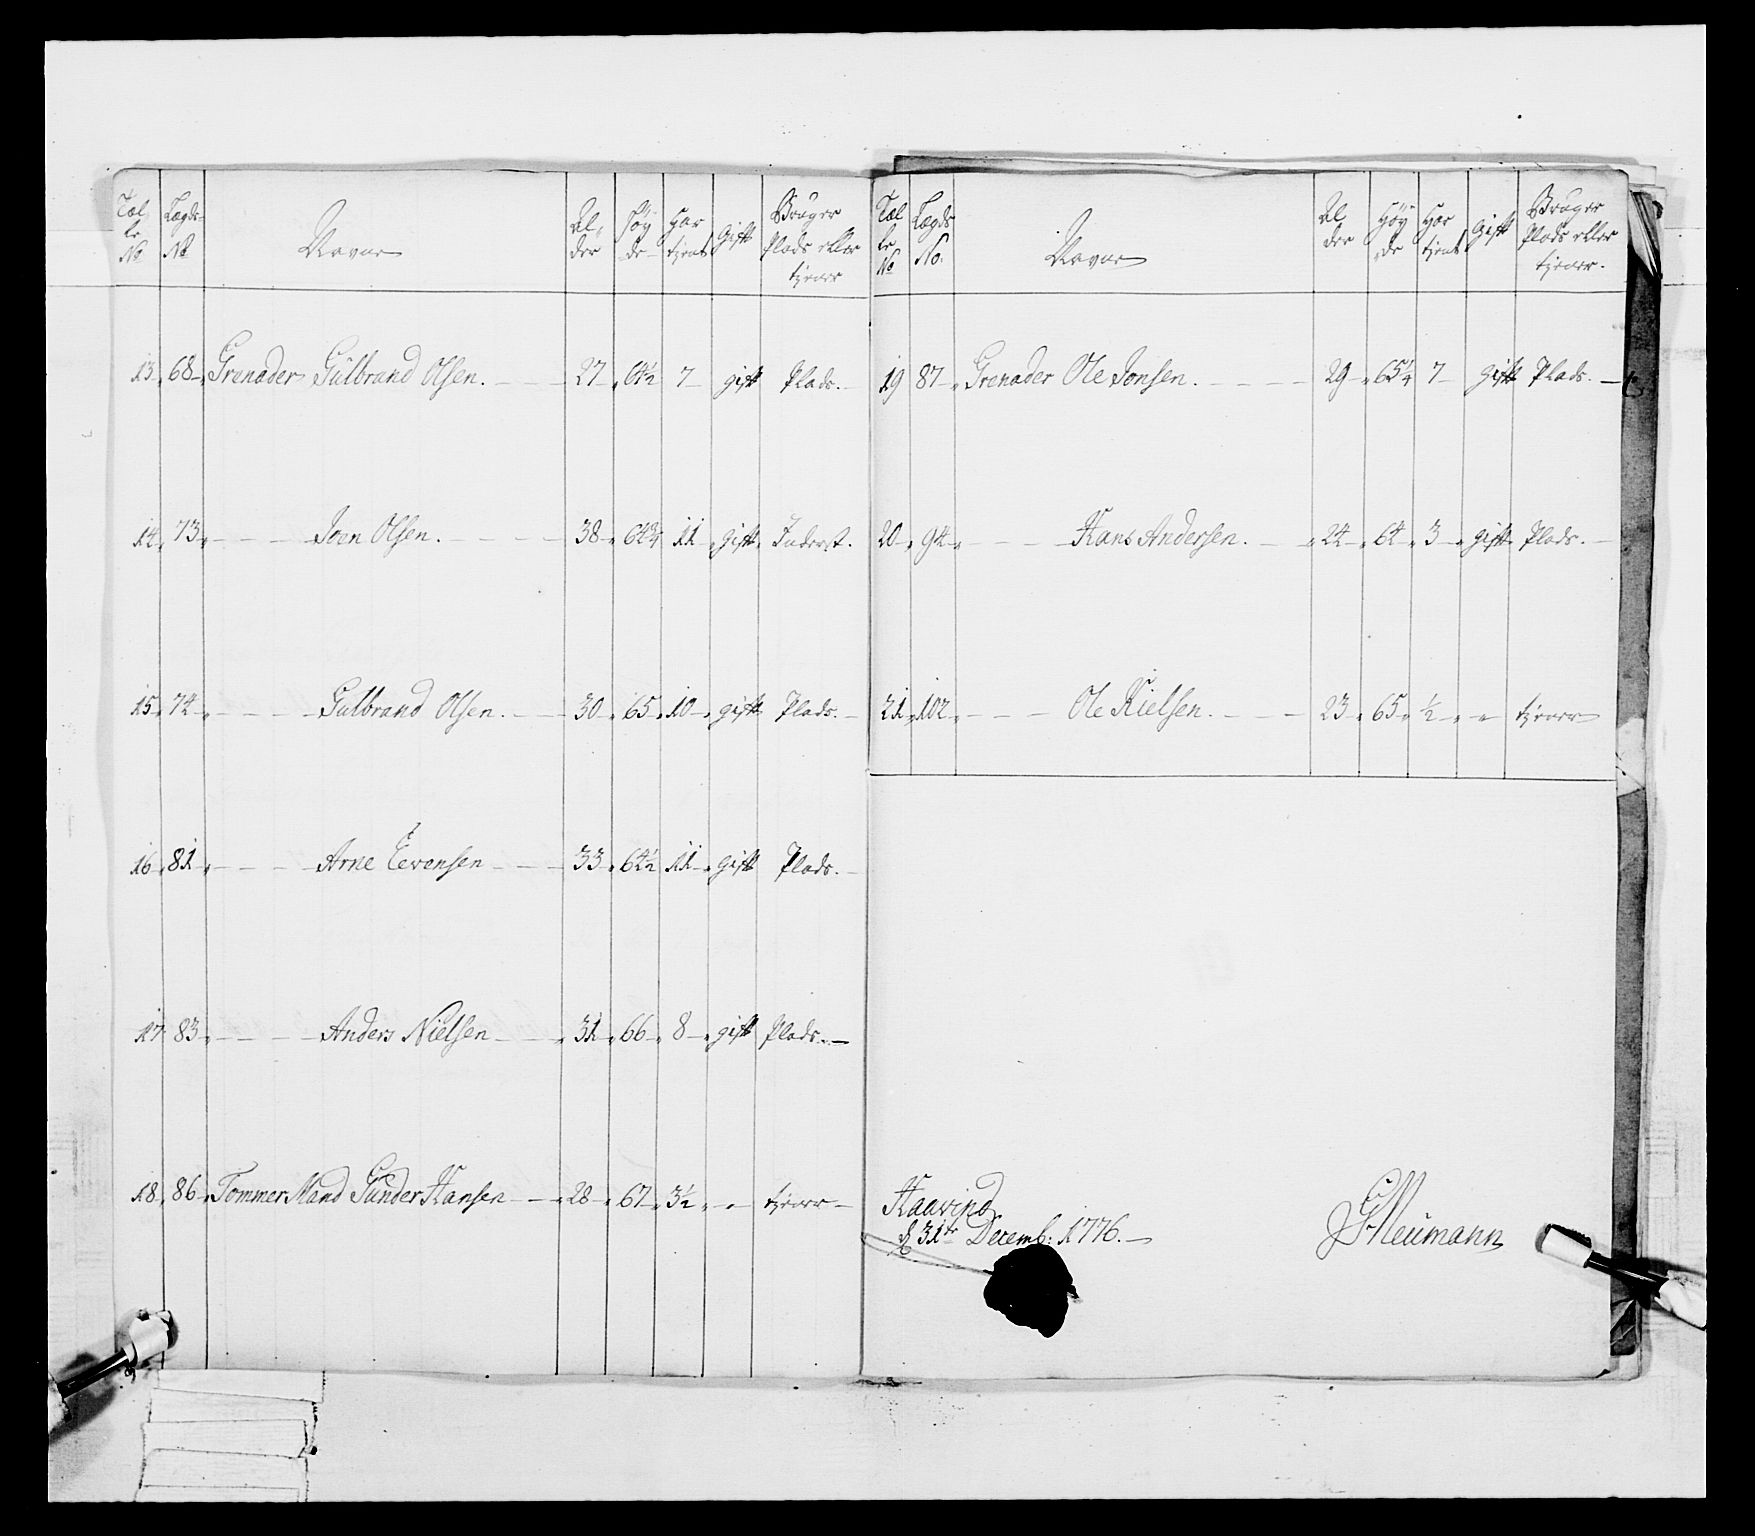 Tæl le No Lægds No Navne Al der Høy de Har tient Gift Bruger Plads eller tjener
13 68 Grenader Gülbrand Olsen. 27 64½ 7 gift Plads.
14 73 Joen Olsen. 38 64¾ 11 gift Inderst.
15 74 Gulbrand Olsen. 30 65 10 gift Plads.
16 81 Arne Evensen 33 64½ 11 gift Plads.
17 83 Anders Nielsen 31 66 8 gift Plads.
18 86 Tømmer Mand Günder Hansen 28 67 3½ " tjener
Tæl le No Lægds No. Navne Al der Høy de Har tient Gift Bruger Plads eller tjener.
19 87 Grenader Ole Jonsen. 29 65¼ 7 gift Plads.
20 94 Hans Andersen. 24 64 3 gift Plads.
21 102 Ole Kielsen. 23 65 ½ " tjener
Haavind
d 31te Decemb: 1776.
Neümann